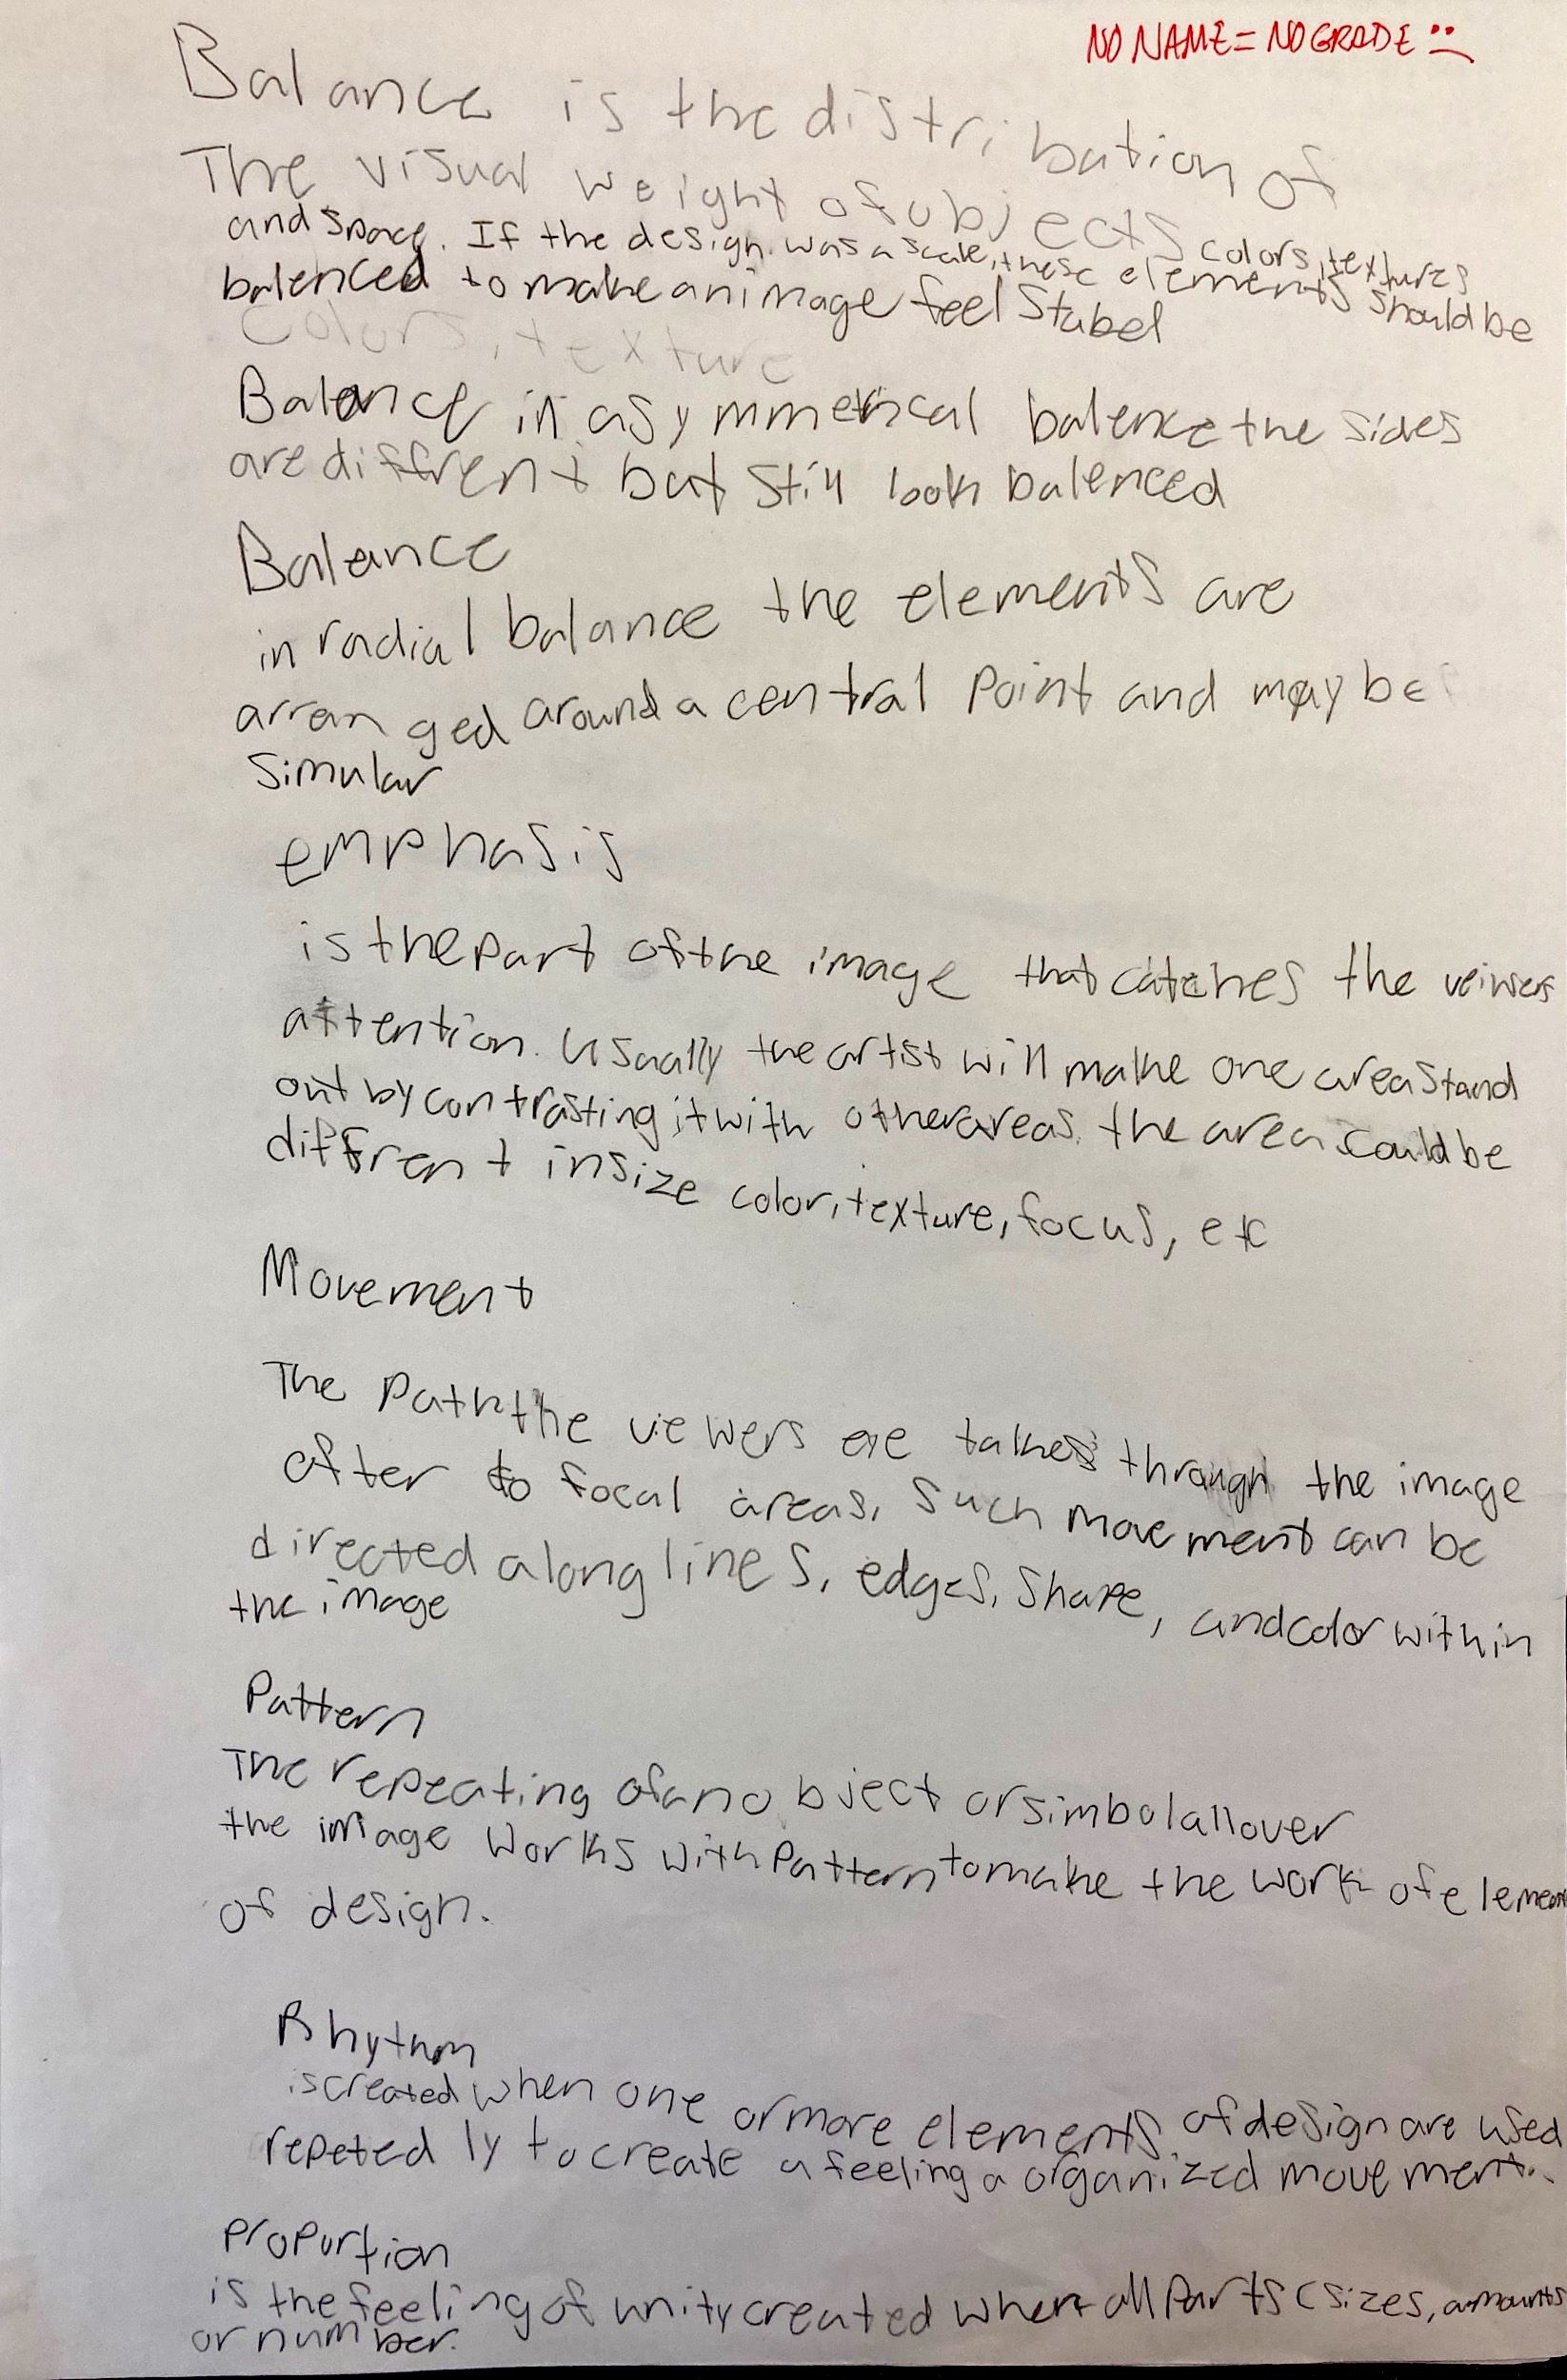 NO NAME = NO GRADE
Balance is the distribution of
The visual weight of objects colors, textures
and space. If the design was a scale, these elements should be
balenced to make an image feel Stabel
Colors, texture
Balance in asymmetrical balence the sides
are diffrent but still look balenced
Balance
in radial balance the elements are
arranged around a central Point and may be
Simular
emphasis
is the part of the image that catches the veiwers
attention. Usually the artist will make one area Stand
out by contrasting it with other areas. the area could be
diffrent in size color, texture, focus, etc
Movement
The Path the viewers eye takes through the image
after to focal areas. Such movement can be
directed along lines, edges, Shape, and color within
the image
Pattern
The repeating of an object or simbol all over
the image works with Pattern to make the work of element
of design.
Rhythm
is created when one or more elements of design are used
repetedly to create a feeling a organized movement.
Proportion
is the feeling of unity created when all Parts (sizes, amounts
or number.